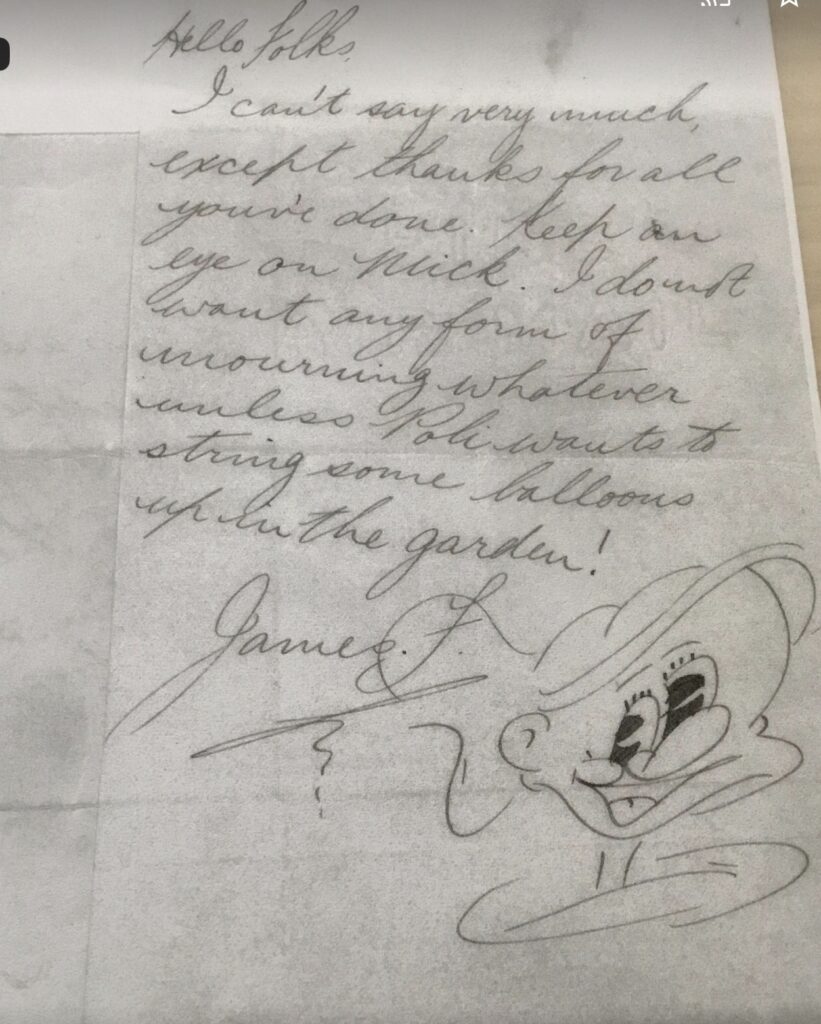 Hello Folks,
I can't say very much,
except thanks for all
you've done. Keep an
eye on Mick. I do not
want any form of
mourning whatever
unless Poli wants to
string some balloons
up in the garden!
James. F.